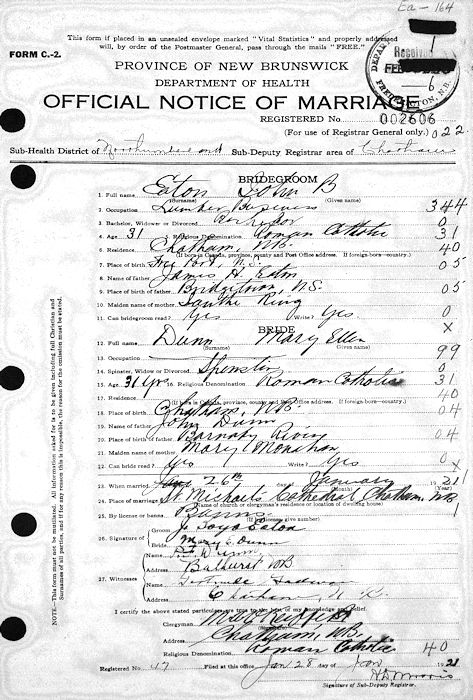 Ea-164
This form if placed in an unsealed envelope marked "Vital Statistics" and properly addressed
will, by order of the Postmaster General, pass through the mails "FREE."
FORM C.-2.
PROVINCE OF NEW BRUNSWICK
DEPARTMENT OF HEALTH
OFFICIAL NOTICE OF MARRIAGE
REGISTERED No. 002606
(For use of Registrar General only.) 022
Sub-Health District of Northumberland Sub-Deputy Registrar area of Chatham
BRIDEGROOM
1. Full name Eaton John B
(Surname) (Given names)
2. Occupation Lumber Business 344
3. Bachelor, Widower or Divorced Bachelor 0
4. Age 31 5. Religious Denomination Roman Catholic 31
6. Residence Chatham, N.B. 40
(If born in Canada, province, county and Post Office address. If foreign-born—country.)
7. Place of birth Free Port, N.S. 05
8. Name of father James H. Eaton
9. Place of birth of father Bridgetown, N.S. 05
10. Maiden name of mother Ring
11. Can bridegroom read? Yes Write? Yes 0
BRIDE X
12. Full name Dunn Mary Ellen
(Surname) (Given names)
13. Occupation 99
14. Spinster, Widow or Divorced Spinster 0
15. Age 31 yrs 16. Religious Denomination Roman Catholic 31
17. Residence Chatham, N.B. 40
(If born in Canada, province, county and post office address. If foreign-born—country.)
18. Place of birth 04
19. Name of father John Dunn
20. Place of birth of father Barnaby River 04
21. Maiden name of mother Mary Monahan
22. Can bride read? Yes Write? Yes 0
X
23. When married 26th January 1921
(Month) (Year)
24. Place of marriage St. Michael's Cathedral Chatham, NB
(Name of church or clergyman's residence or location of dwelling house)
25. By license or banns Banns 1
(If license give number)
26. Signature of Groom J. Eaton
Bride Mary E. Dunn
27. Witnesses Name Dunn
Address Bathurst NB
Name Gertrude
Address Chatham, N.B.
I certify the above stated particulars are true to the best of my knowledge and belief.
Clergyman
Address Chatham, N.B.
Religious Denomination Roman Catholic 40
Registered No. 47 Filed at this office Jan 28 1921
Signature of Sub-Deputy Registrar.
NOTE.—This form must not be detached. All information asked for is to be given including full Christian and
Surnames of all parties, and if for any reason this is impossible, the reason for the omission must be stated.